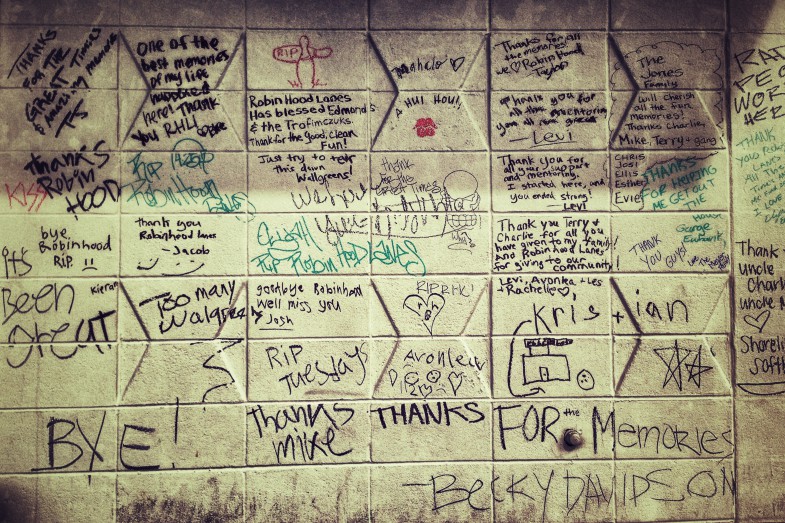 THANKS
FOR THE
GREAT TIMES
& Amazing memories
TS
One of the
best memories
of my life
happened
here! Thank
You RHL!
RIP
Robin Hood Lanes
Has blessed Edmonds
& the Trofimczuks.
Thank for the good, clean
Fun!
Mahalo ♡
A Hui Hou!
Thanks for all
the memories!
we ♡ Robin Hood
Taylor
Thank you for
all
you all
- Levi
The
Jones
Family
Will cherish
all the fun
memories!
Thanks Charlie,
Mike, Terry + gang
RAD
PEO
WOR
HERE
Thanks
Robin
HOOD
KISS
RIP
Robin Hood
Lanes
Just try to tear
this down
Walgreens!
Thanks
for the
Great Times
Thank you for
all your support
and mentoring.
I started here, and
you ended strong!
Levi
CHRIS
JOSI
Ellis
Esther
Evie
THANKS
FOR HELPING
ME GET OUT
THE
House
George
THANK
YOU
it's
bye
Robinhood
R.I.P. :(
Thank you
Robinhood lanes
- Jacob
RIP Robin Hood LANES
Thank you Terry &
Charlie for all you
have given to my family!
And Robin Hood Lanes
for giving to our
community!
THANK
YOU GUYS!
Thank
uncle
Charl
uncle M
Been kieran
Great
Too many
Walgreens
goodbye Robinhood
We'll miss you
Josh
R.I.P. RHL!
Levi, Avonlea + Les
+ Rachelle ♡
Kris + ian
Shoreli
Softb
RIP
Tuesdays
Avonlea
BYE!
Thanks
mike
THANKS FOR the Memories
-BECKY DAVIDSON